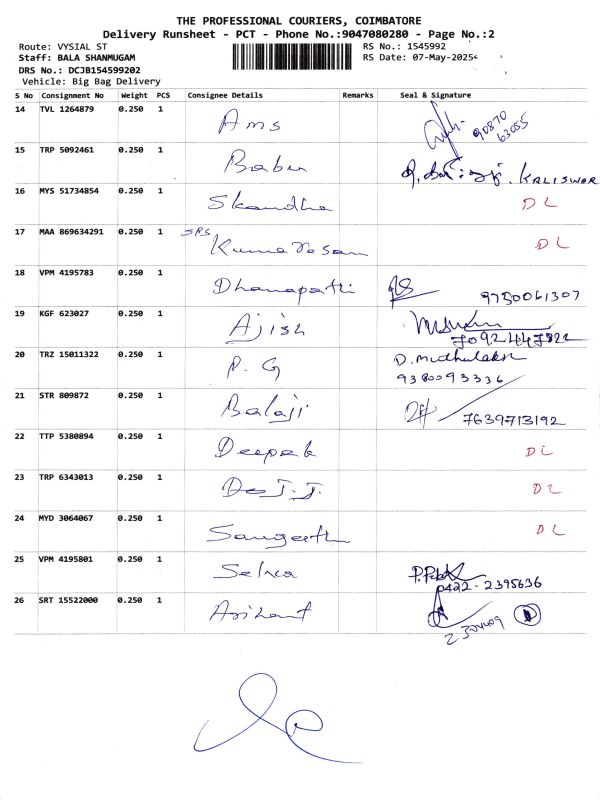 THE PROFESSIONAL COURIERS, COIMBATORE
Delivery Runsheet - PCT - Phone No.:9047080280 - Page No.:2
Route: VYSIAL ST RS No.: 1545992
Staff: BALA SHANMUGAM RS Date: 07-May-2025
DRS No.: DCJB154599202
Vehicle: Big Bag Delivery
S No Consignment No Weight PCS Consignee Details Remarks Seal & Signature
14 TVL 1264879 0.250 1 Ams 90870
63055
15 TRP 5092461 0.250 1 Babu KALISWAR
16 MYS 51734854 0.250 1 Skandha DL
17 MAA 869634291 0.250 1 SRS Kumaresan DL
18 VPM 4195783 0.250 1 Dhanapatti 9750061307
19 KGF 623027 0.250 1 Ajish
20 TRZ 15011322 0.250 1 R. G D. Mudhulaksh
9380093336
21 STR 809872 0.250 1 Balaji 7639713192
22 TTP 5380894 0.250 1 Deepak DL
23 TRP 6343013 0.250 1 DL
24 MYD 3064067 0.250 1 Sangeeth DL
25 VPM 4195801 0.250 1 Selva
0422-2395636
26 SRT 15522000 0.250 1 Arihant